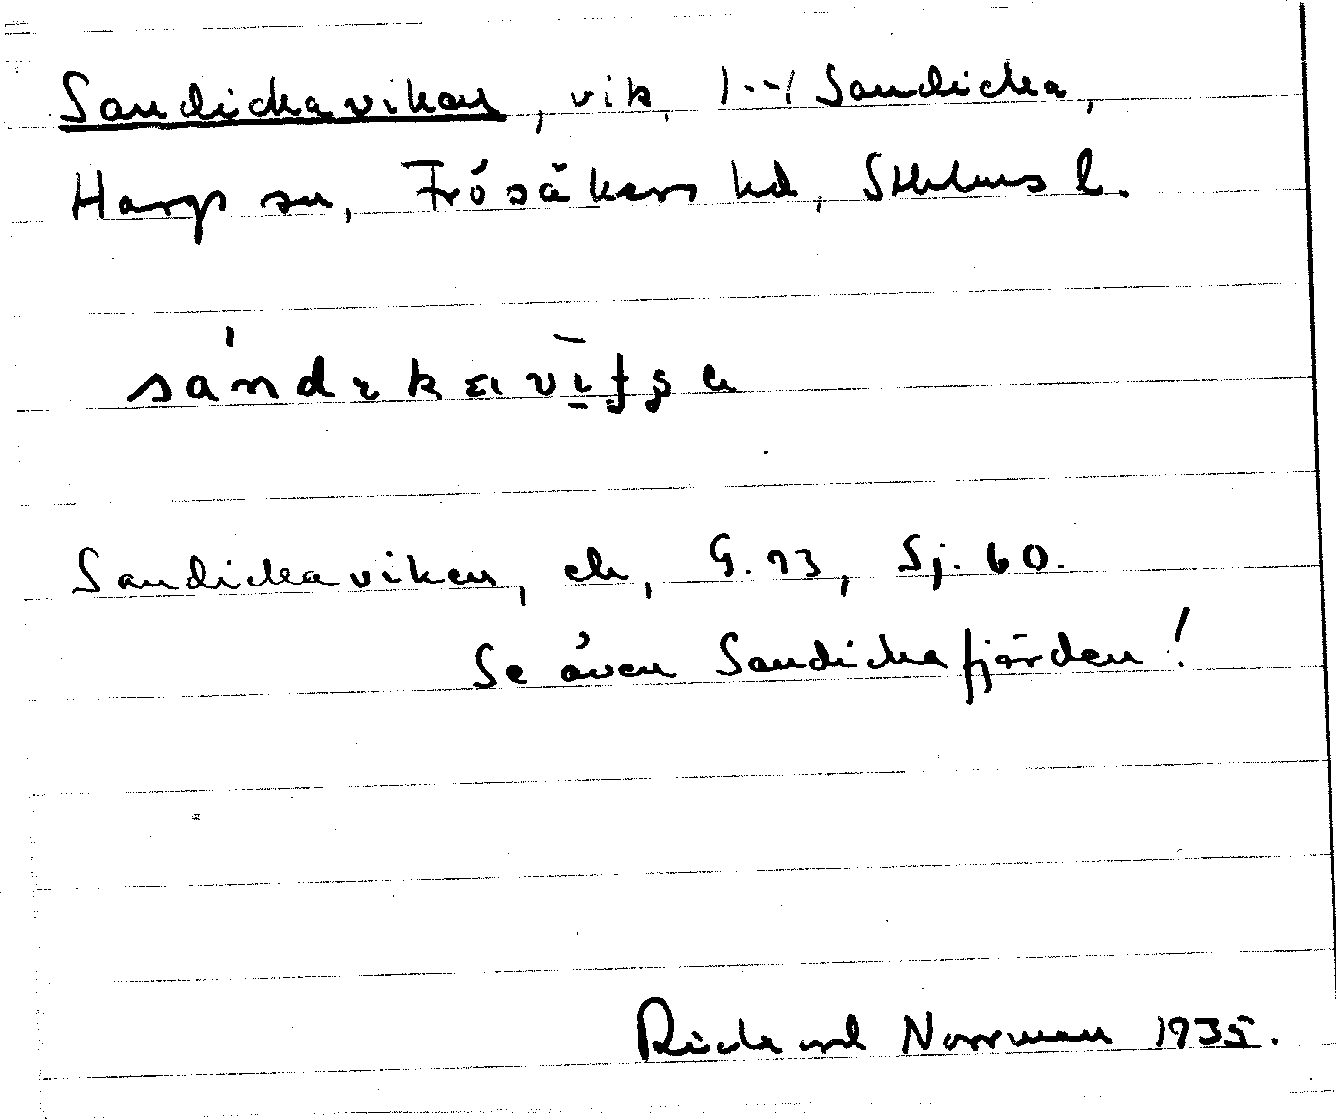 Sandickaviken, vik, 1--1 Sandicka,
Hargs sn, Frösåkers hd, Sthlms l.
Sandickaviken, ek, G. 93, Sj. 60.
Se även Sandickafjärden!
Rickard Norrman 1935.